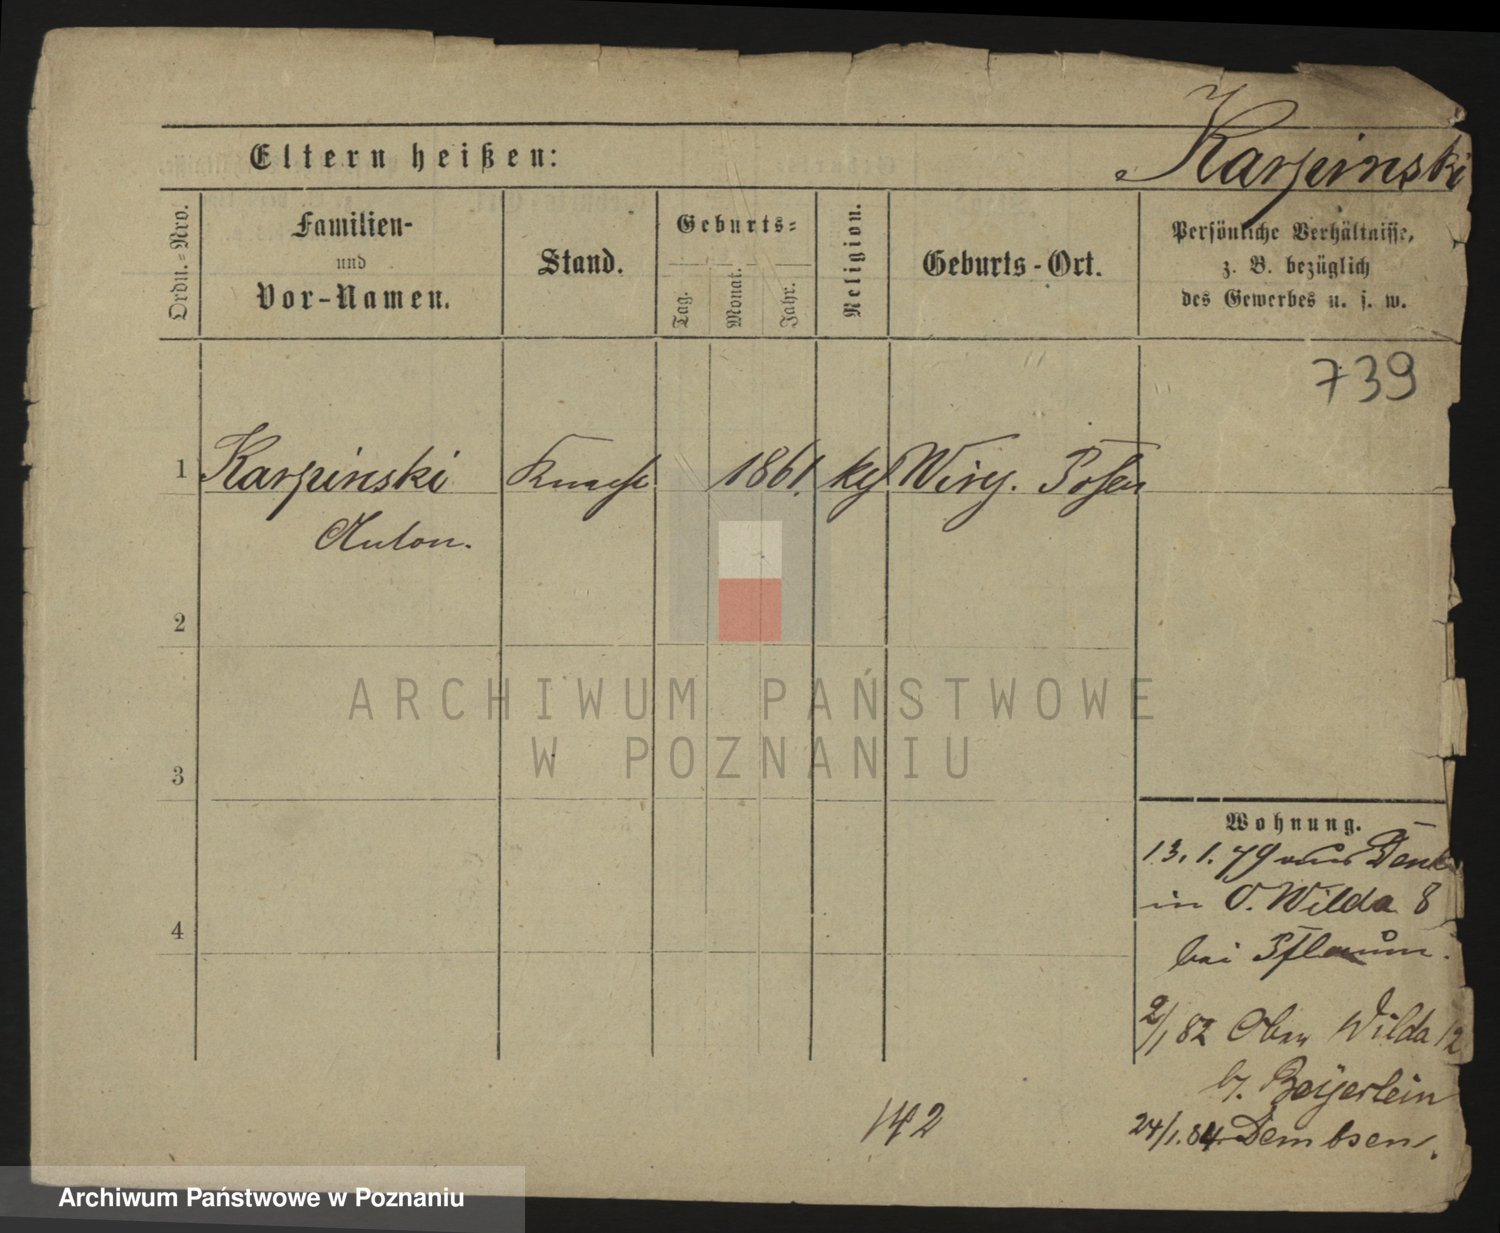 Karpinski
Eltern heißen:
Ordn.=Nro.
Familien-
und
Vor-Namen.
Stand.
Geburts=
Tag.
Monat.
Jahr.
Religion.
Geburts-Ort.
Persönliche Verhältnisse,
z. B. bezüglich
des Gewerbes u. s. w.
739
1 Karpinski Knecht 1861. kg Wiry. Posen
Anton.
2
3
4
ARCHIWUM PAŃSTWOWE
W POZNANIU
Wohnung.
13.1.79 aus
in O. Wilda 8
bei Pflaum.
2/1 82 Ober Wilda 12
b. Beyerlein
24/1.84 Dembsen.
142
Archiwum Państwowe w Poznaniu